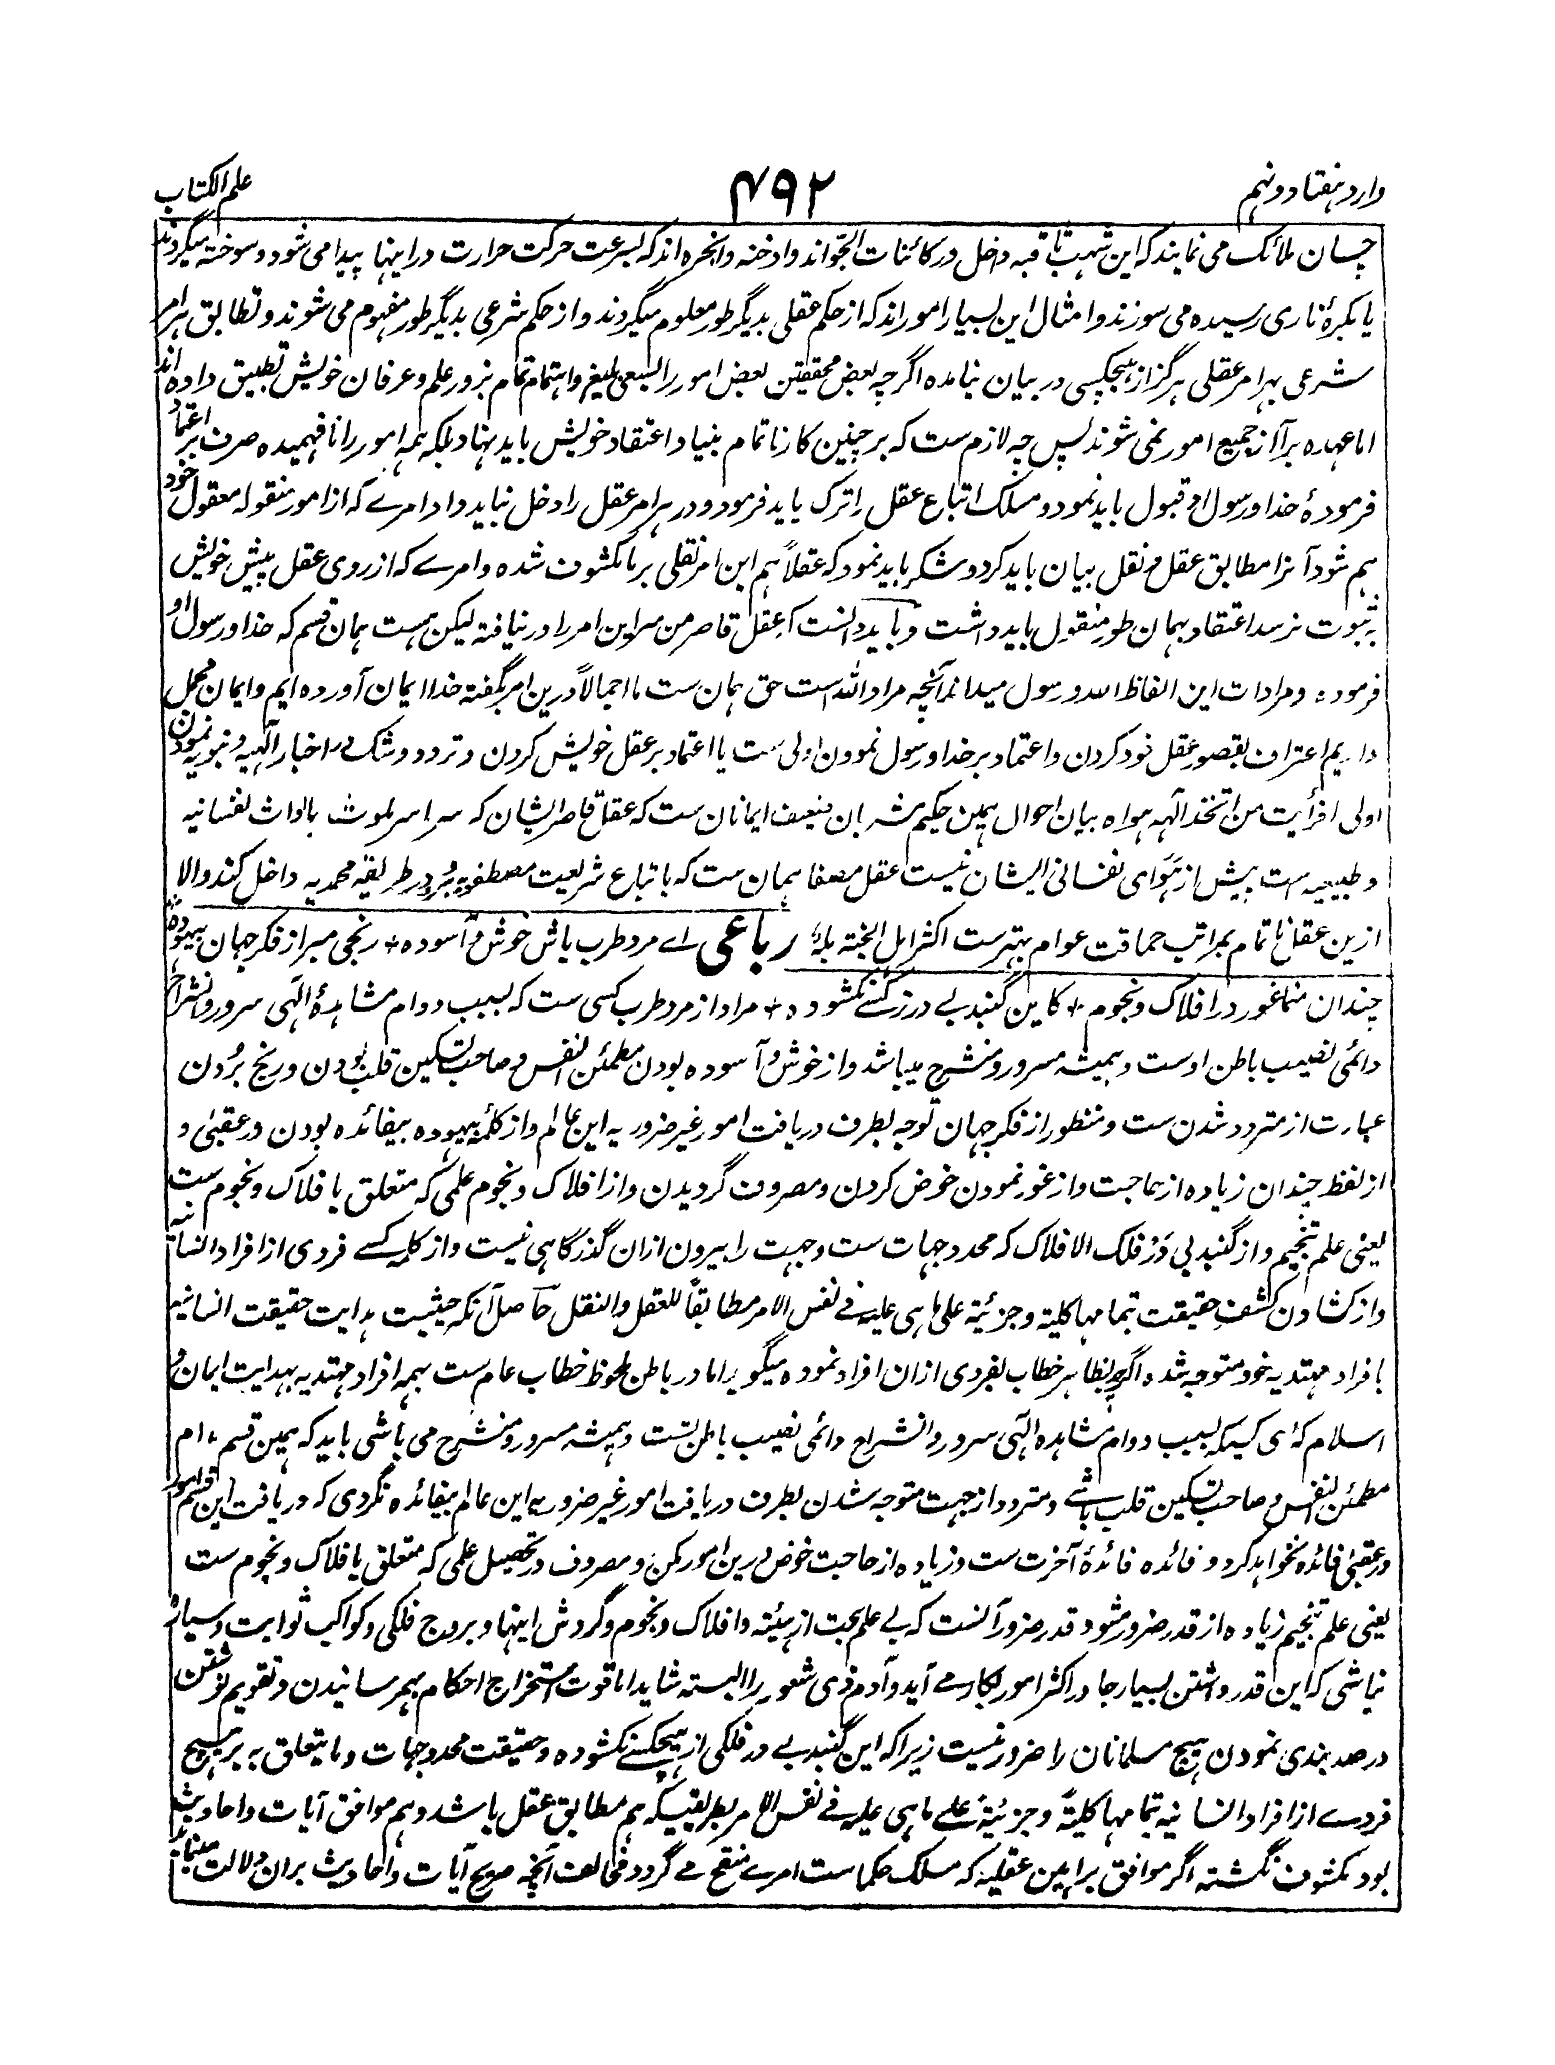 وارد هفتاد و نهم
۴۹۲
علم الکتاب
چسان ملائک می نمایند که این شهب ثاقبه داخل در کائنات الجو اند و ادخنه و ابخره اند که بسرعت حرکت حرارت در اینها پیدا می شود و سوخته میگردند
یا بکرهٔ ناری رسیده می سوزند و امثال این بسیار امور اند که از حکم عقلی بدیگر طور معلوم میگردند و از حکم شرعی بدیگر طور مفهوم می شوند و تطابق هر امر
شرعی بهر امر عقلی هرگز از هیچکسی در بیان نیامده اگرچه بعض محققین بعض امور را بسعی بلیغ و اهتمام تمام بزور علم و عرفان خویش تطبیق داده اند
اما عهده برآ از جمیع امور نمی شوند پس چه لازم ست که بر چنین کار ناتمام بنیاد اعتقاد خویش باید نهاد بلکه همه امور را نافهمیده صرف بر اعتماد
فرمودهٔ خدا و رسول او قبول باید نمود و مسلک اتباع عقل را ترک باید فرمود و در هر امر عقل را دخل نباید داد امرے که از امور منقوله معقول خود
هم شود آنرا مطابق عقل و نقل بیان باید کرد و شکر باید نمود که عقلاً هم این امر نقلی بر ما مکشوف شده و امرے که از روی عقل پیش خویش
به ثبوت نرسد اعتقاد بهمان طور منقول باید داشت و باید دانست که عقل قاصر من سر این امر را در نیافته لیکن هست همان قسم که خدا و رسول او
فرموده و مرادات این الفاظ الله و رسول میداند آنچه مراد الله است حق همان ست ما اجمالاً درین امر بگفته خدا ایمان آورده ایم و ایمان مجمل
داریم اعتراف بقصور عقل خود کردن و اعتماد بر خدا و رسول نمودن اولی ست یا اعتماد بر عقل خویش کردن و تردد و شک در اخبار الٰهیه و نبویه نمودن
اولی افرأیت من اتخذ الٰهه هواه بیان احوال همین حکیم مشربان ضعیف ایمانان ست که عقل قاصر ایشان که سراسر ملوث بالواث نفسانیه
و طبیعیه ست بیش از هَوَای نفسانی ایشان نیست عقل مصفا همان ست که باتباع شریعت مصطفویه بُرد در طریقه محمدیه داخل کند والا
ازین عقل ناتمام بمراتب حماقت عوام بهتر ست اکثر اهل الجنة بلهٌ رباعی اے مرد طرب باش خوش و آسوده + رنجی مبر از فکر جهان بیهوده
چندان منما غور در افلاک و نجوم + کاین گنبد بے در ز کسے نکشوده + مراد از مرد طرب کسی ست که بسبب دوام مشاهدهٔ الٰهی سرور و انشراح
دائمی نصیب باطن اوست و همیشه مسرور و منشرح میباشد و از خوش و آسوده بودن مطمئن النفس و صاحب تسکین قلب بودن و رنج بُردن
عبارت از متردد شدن ست و منظور از فکر جهان توجه بطرف دریافت امور غیر ضروریه این عالم و از کلمهٔ بیهوده بیفائده بودن در عقبیٰ و
از لفظ چندان زیاده از حاجت و از غور نمودن خوض کردن و مصروف گردیدن و از افلاک و نجوم علمی که متعلق با فلاک و نجوم ست
یعنی علم تنجیم و از گنبد بی دَر فلک الافلاک که محدد جهات ست و جهت را بیرون ازان گذرگاهی نیست و از کلمه کسے فردی از افراد انسانیه
و از کشادن کشفِ حقیقت بتمامها کلیة و جزئیة علی ما هی علیه فی نفس الامر مطابقاً للعقل والنقل حاصل آنکه حیثیت هدایت حقیقت انسانیه
بافراد مهتدیه خود متوجه شده اگرچه بظاهر خطاب بفردی ازان افراد نموده میگوید اما در باطن ملحوظ خطاب عام ست بهمه افراد مهتدیه بهدایت ایمان و
اسلام که ای کسیکه بسبب دوام مشاهده الٰهی سرور و انشراح دائمی نصیب باطن تست و همیشه مسرور و منشرح می باشی باید که همین قسم مدام
مطمئن النفس و صاحب تسکین قلب باشے و متردد از جهت متوجه شدن بطرف دریافت امور غیر ضروریه این عالم بیفائده نگردی که دریافت این قسم امور
در عقبیٰ فائده نخواهد کرد و فائده فائدهٔ آخرت ست و زیاده از حاجت خوض درین امور مکن و مصروف در تحصیل علمی که متعلق بافلاک و نجوم ست
یعنی علم تنجیم زیاده از قدر ضرور مشو و قدر ضرور آنست که بے علم بحت از هیئة و افلاک و نجوم و گردش اینها و بروج فلکی و کواکب ثوابت و سیاره
نباشی که این قدر داشتن بسیار جا در اکثر امور بکار مے آید و آدم ذی شعور را البته شاید اما قوت استخراج احکام بهم رسانیدن و تقویم نوشتن
در صد بندی نمودن هیچ مسلمانان را ضرور نیست زیرا که این گنبد بے در فلکی از هیچکسے نکشوده و حقیقت محدد جهات و ما یتعلق به بر هیچ
فردے از افراد انسانیه بتمامها کلیةً و جزئیةً علے ما هی علیه فے نفس الامر بطریقیکه هم مطابق عقل باشد و هم موافق آیات و احادیث
بود مکشوف نگشته اگر موافق براهین عقلیه که مسلک حکماست امرے منقح مے گردد مخالف آنچه صریح آیات و احادیث بران دلالت مینماید